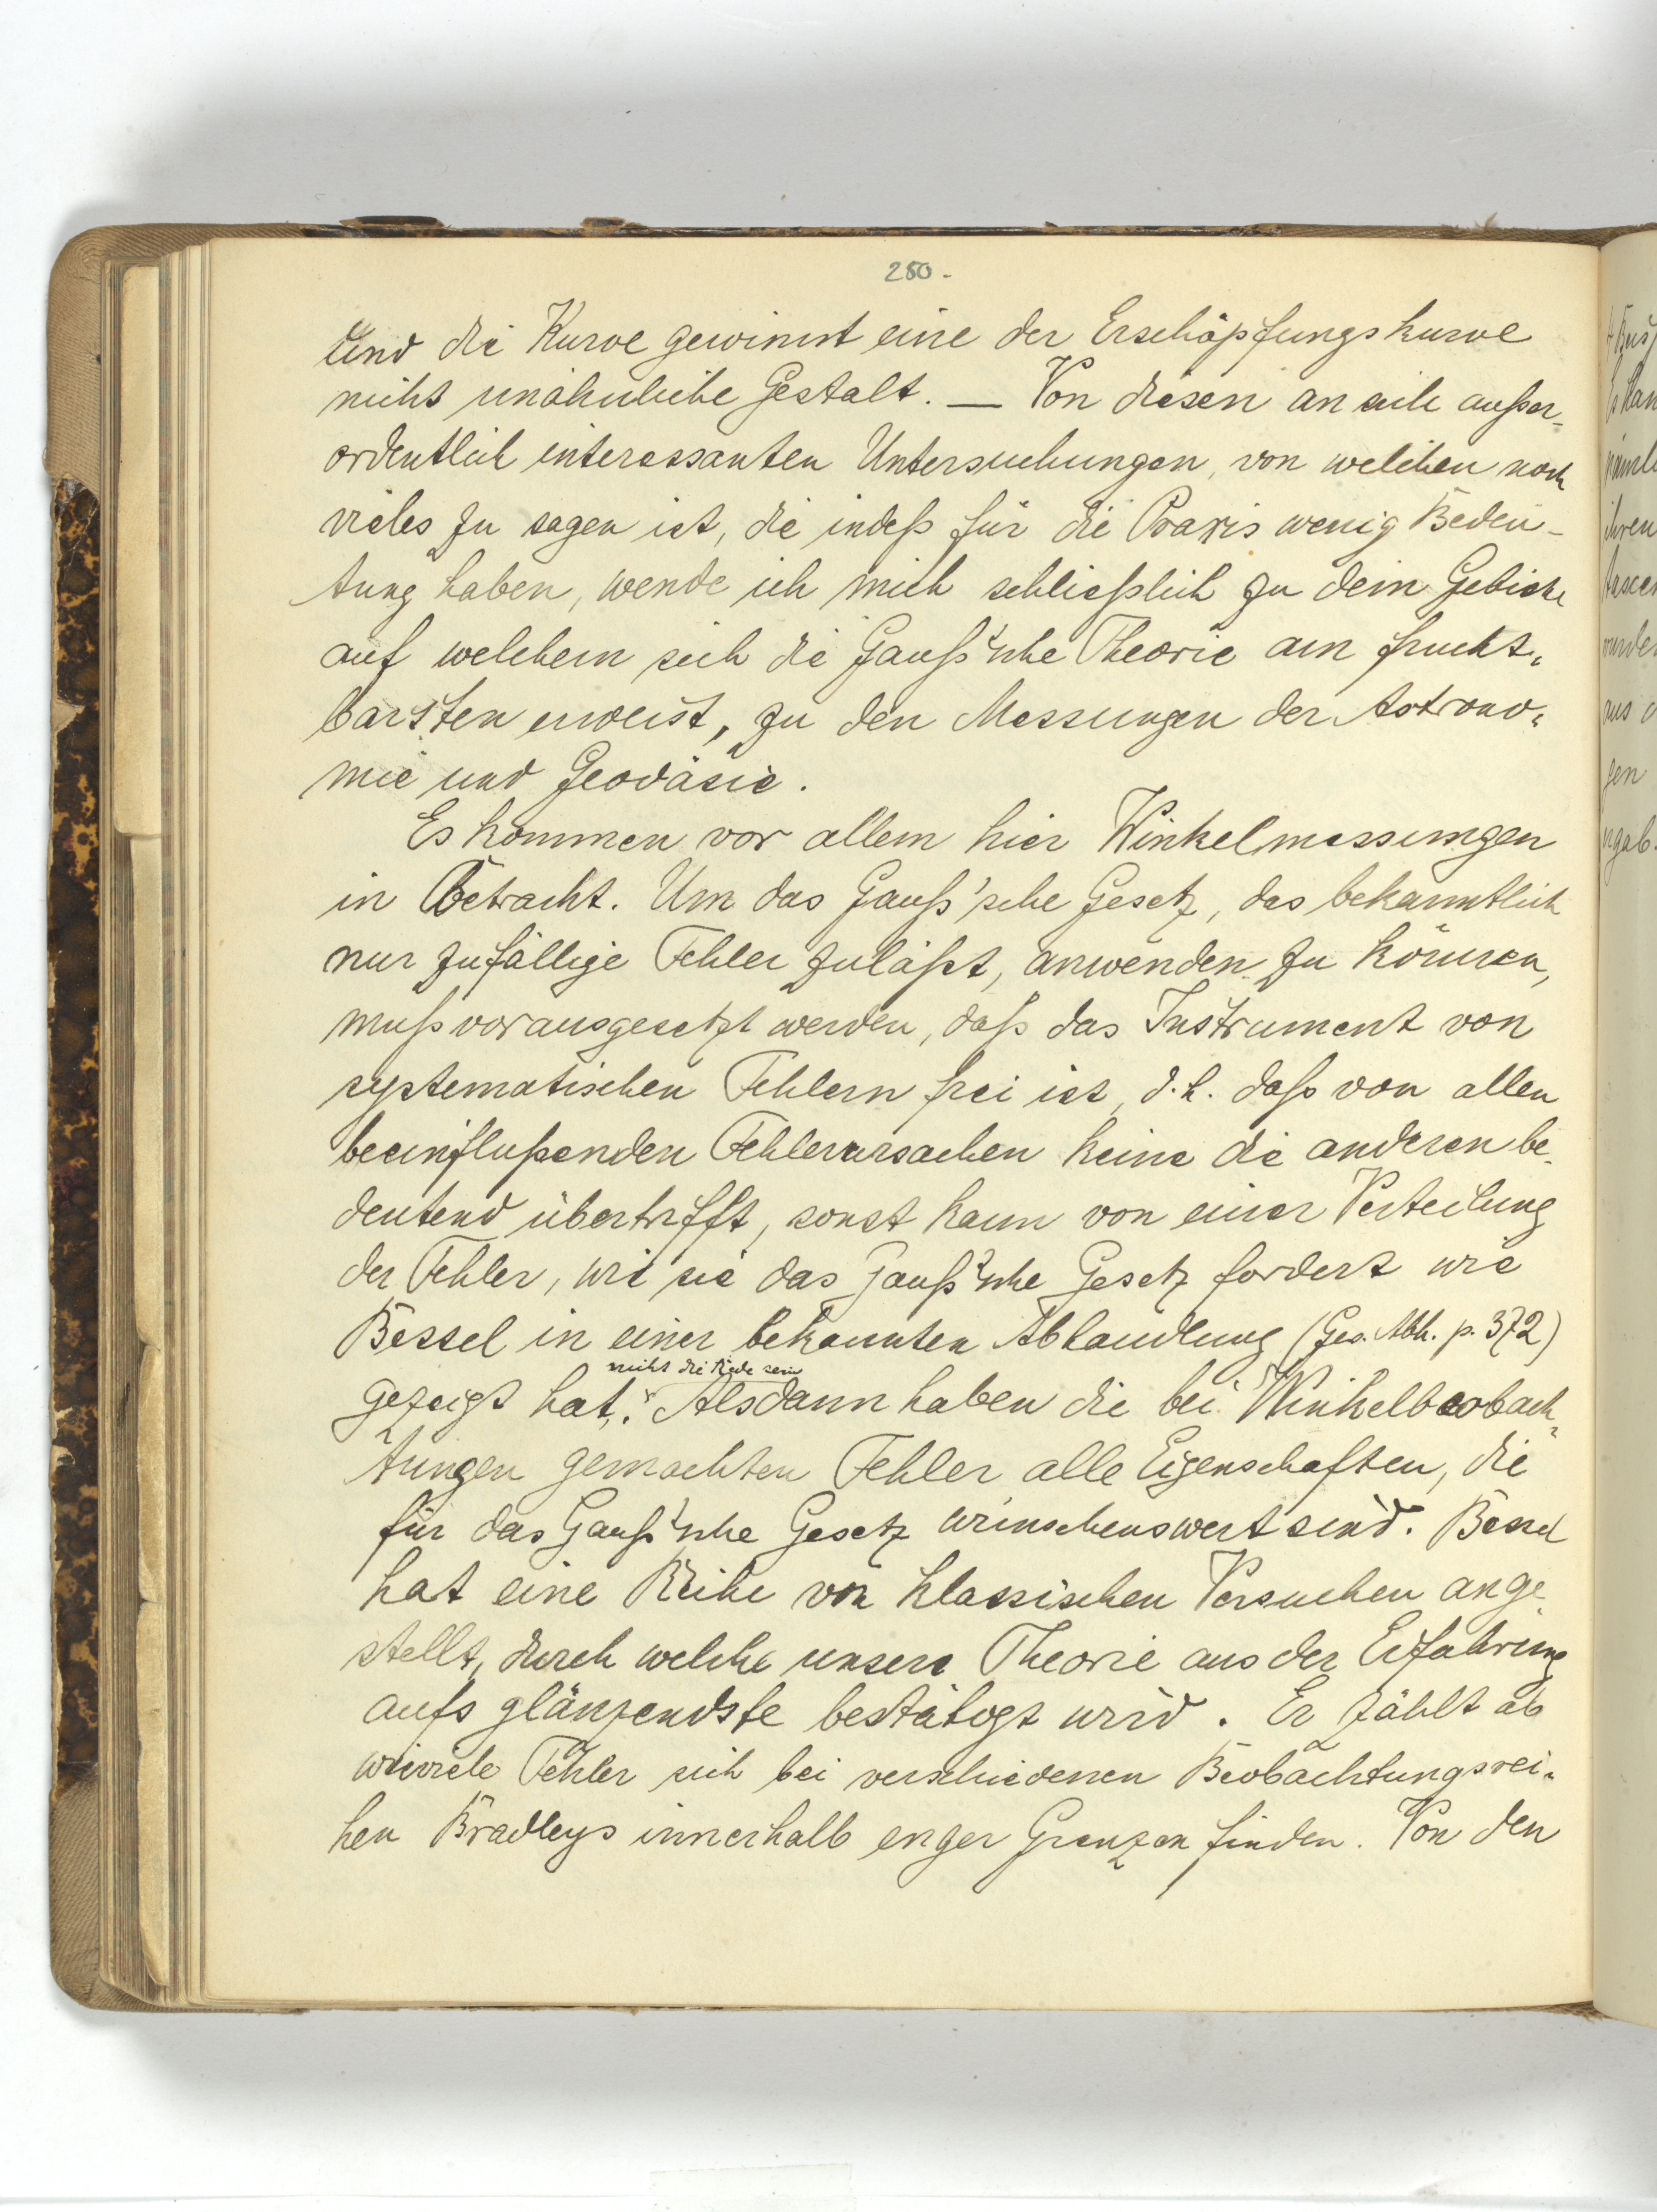 280.
und die Kurve gewinnt eine der Erschöpfungskurve
nicht unähnliche Gestalt. — Von diesen an sich außer-
ordentlich interessanten Untersuchungen, von welchen noch
vieles zu sagen ist, die indeß für die Praxis wenig Bedeu-
tung haben, wende ich mich schließlich zu dem Gebiete
auf welchem sich die Gauß'sche Theorie am frucht-
barsten erweist, zu den Messungen der Astrono-
mie und Geodäsie.
Es kommen vor allem hier Winkelmessungen
in Betracht. Um das Gauß'sche Gesetz, das bekanntlich
nur zufällige Fehler zuläßt, anwenden zu können,
muß vorausgesetzt werden, daß das Instrument von
systematischen Fehlern frei ist, d.h. daß von allen
beeinflußenden Fehlerursachen keine die anderen be-
deutend übertrifft, sonst kann von einer Verteilung
der Fehler, wie sie das Gauß'sche Gesetz fordert wie
Bessel in einer bekannten Abhandlung (Ges. Abh. p. 372)
nicht die Rede sein
gezeigt hat,. Alsdann haben die bei Winkelbeobach-
tungen gemachten Fehler alle Eigenschaften, die
für das Gauß'sche Gesetz wünschenswert sind. Bessel
hat eine Reihe von klassischen Versuchen ange-
stellt, durch welche unsere Theorie aus der Erfahrung
aufs glänzendste bestätigt wird. Er zählt ab
wieviele Fehler sich bei verschiedenen Beobachtungsrei-
hen Bradleys innerhalb enger Grenzen finden. Von den